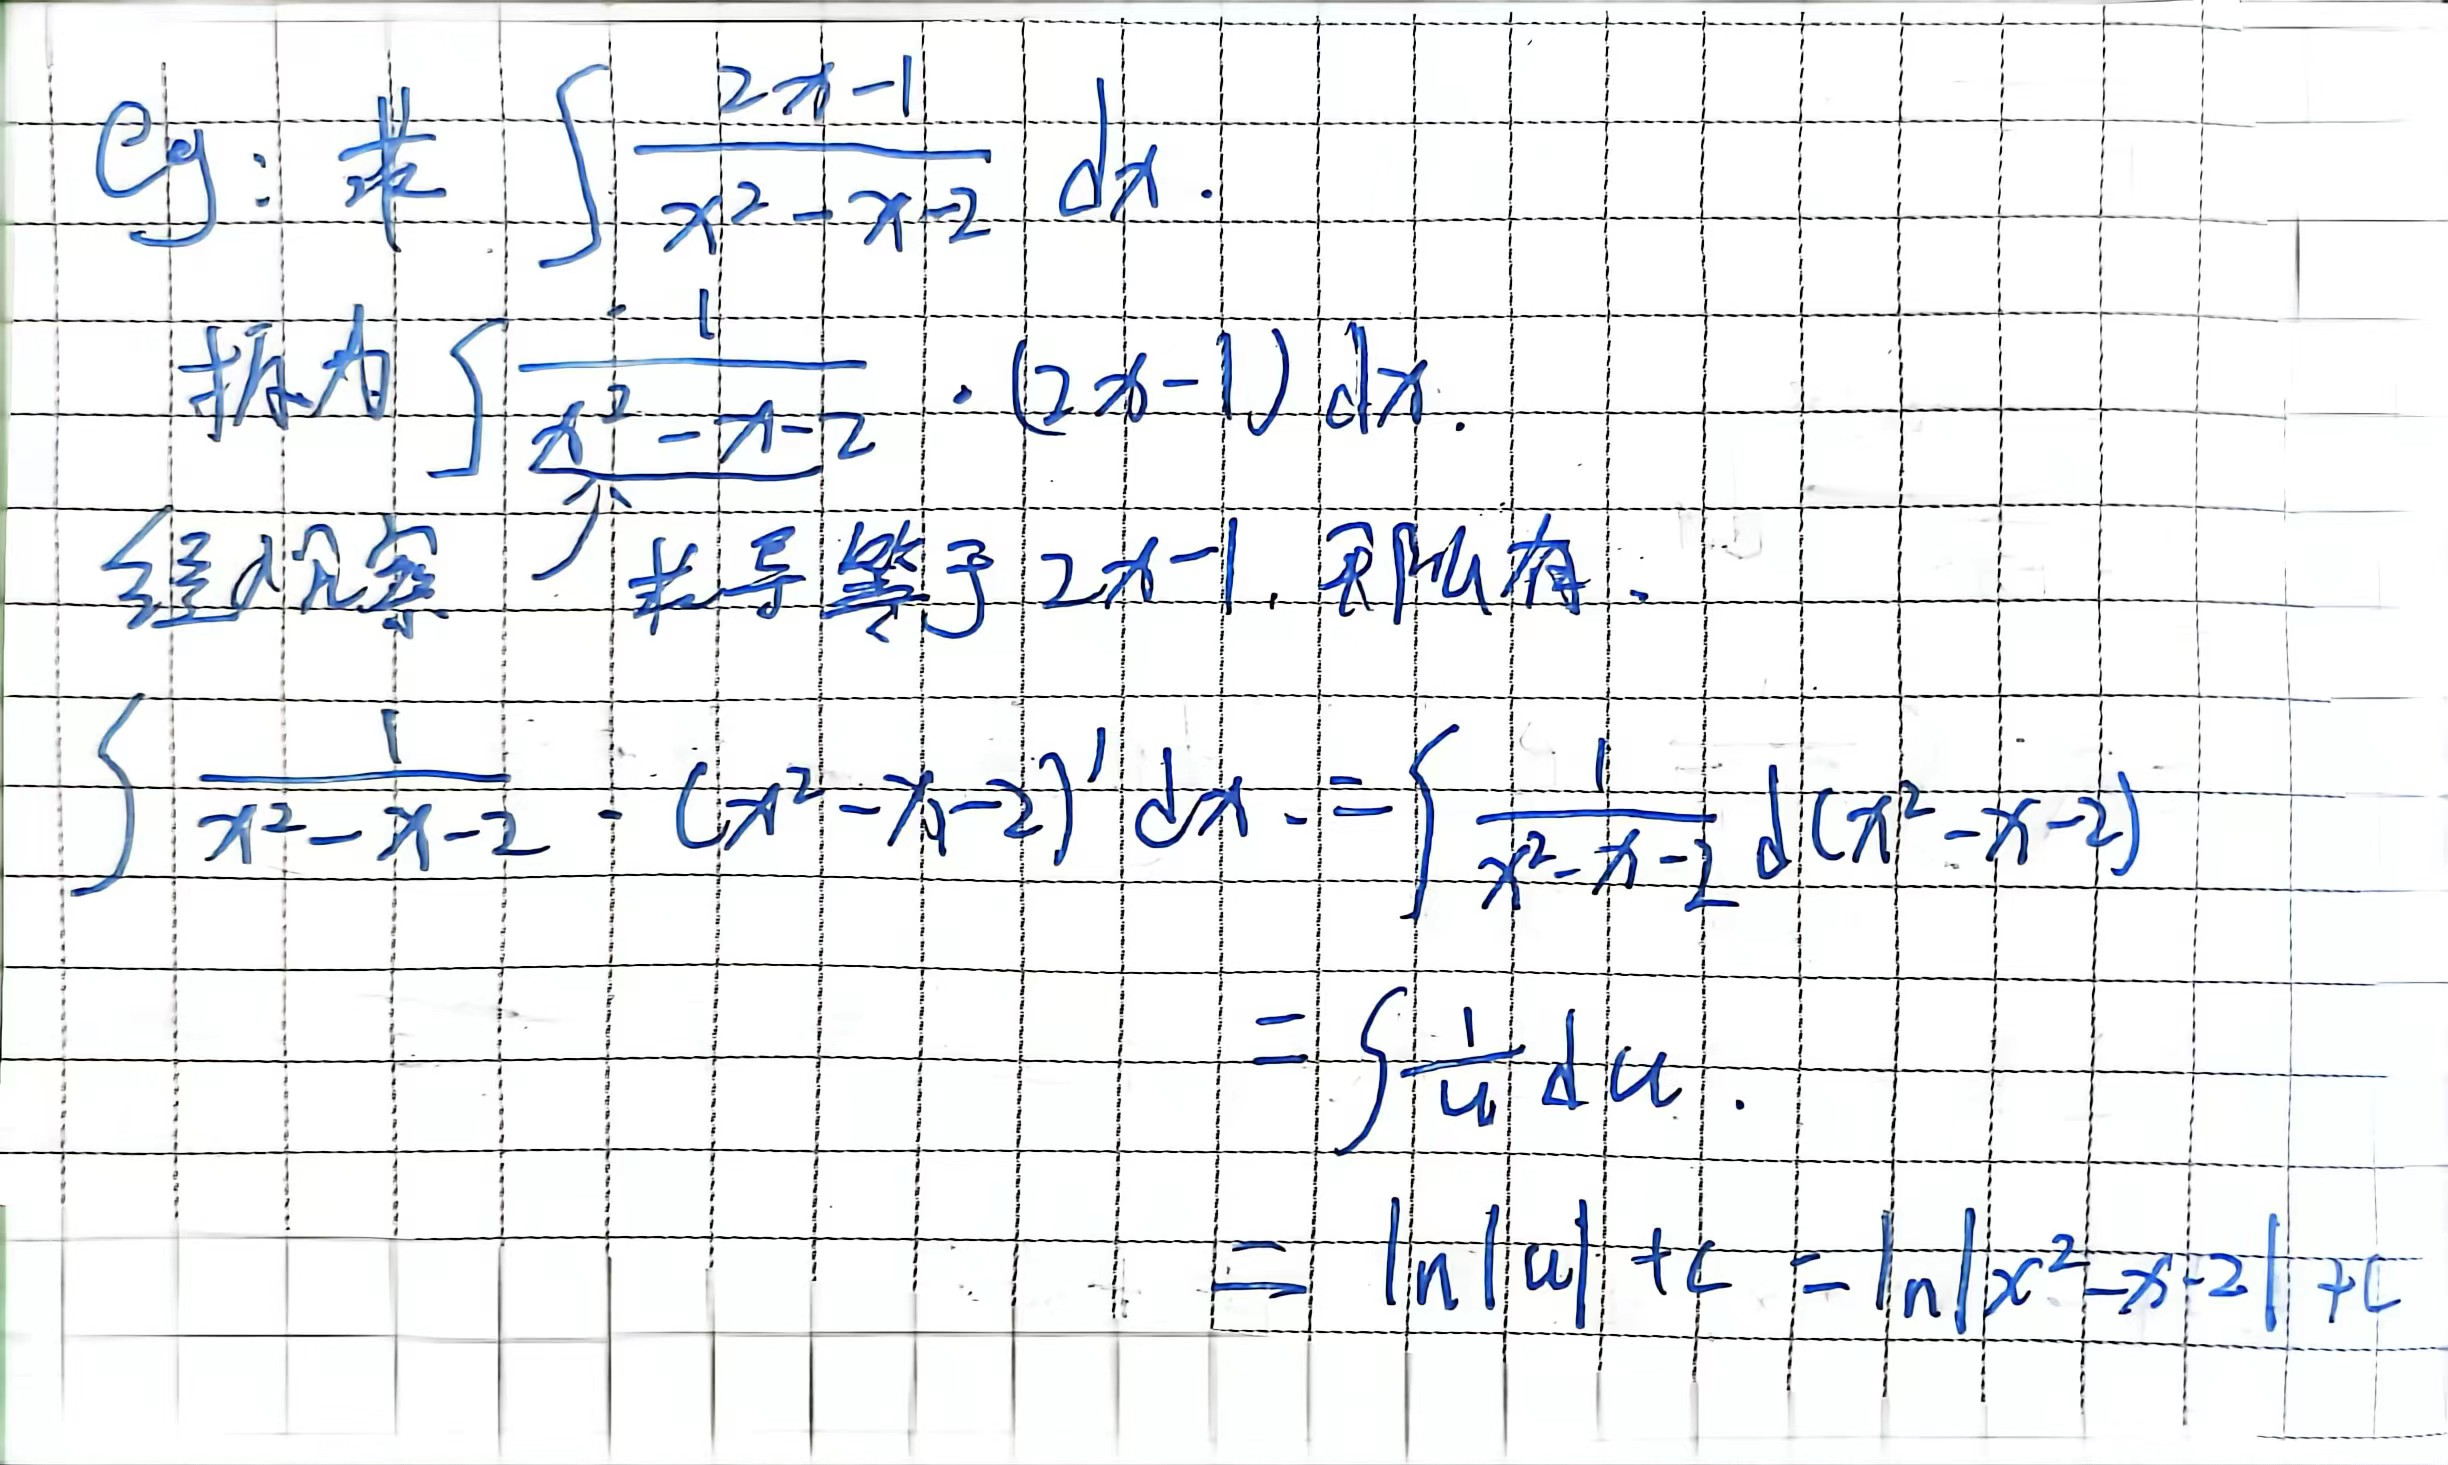 eg: 求 ∫ (2x-1)/(x²-x-2) dx.
拆为 ∫ 1/(x²-x-2) · (2x-1) dx.
经观察 ↗ 求导等于 2x-1. 所以有.
∫ 1/(x²-x-2) · (x²-x-2)' dx. = ∫ 1/(x²-x-2) d(x²-x-2)
= ∫ 1/u du.
= ln|u| +c = ln|x²-x-2| +c